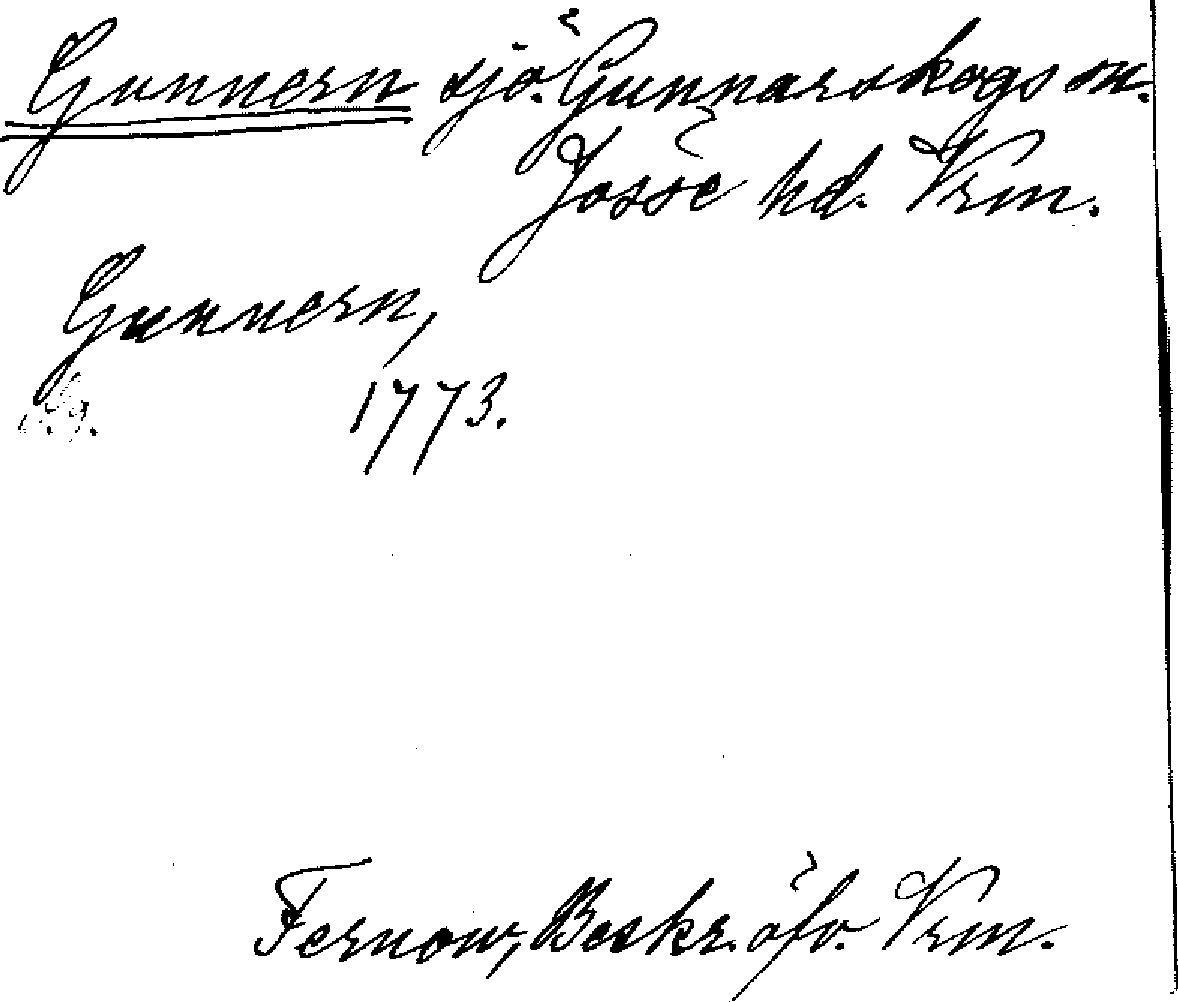 Gunnern sjö. Gunnarskogs sn.
Jösse hd. Vrm.
Gunnern,
1773.
Fernow, Beskr. öfv. Vrm.